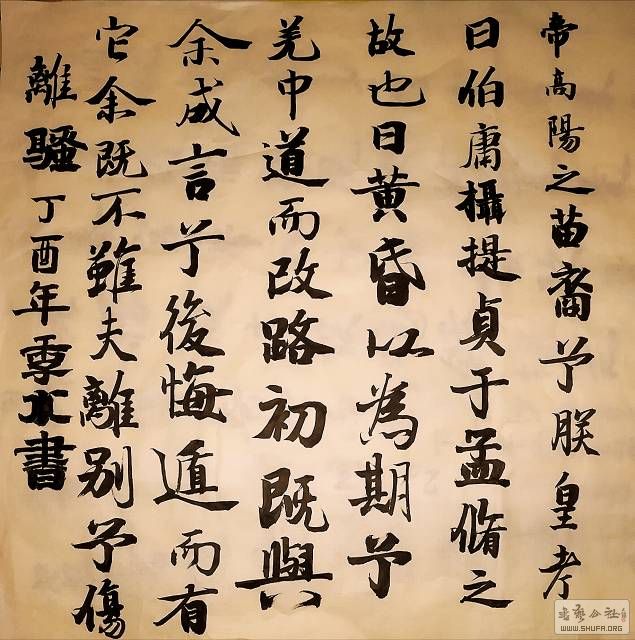 帝高陽之苗裔兮朕皇考
曰伯庸攝提貞于孟脩之
故也曰黃昏以為期兮
羌中道而改路初既與
余成言兮後悔遁而有
它余既不雖夫離別兮傷
離騷丁酉年水書
書藝公社
WWW.SHUFA.ORG